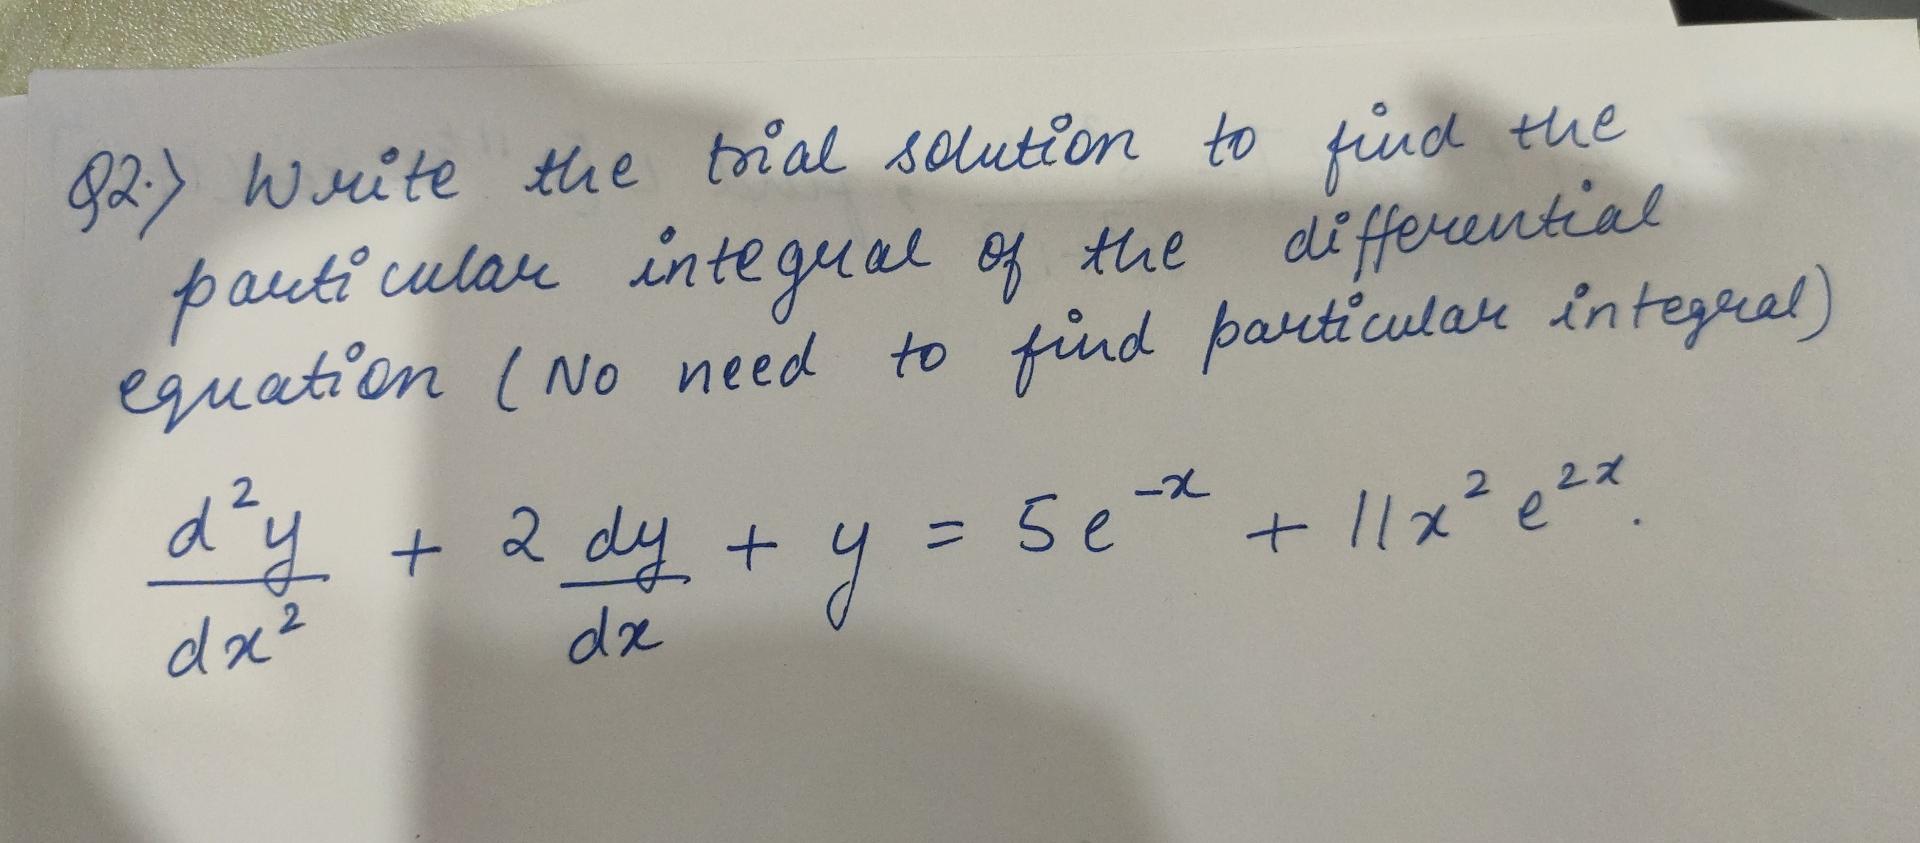 Q2.) Write the trial solution to find the
particular integral of the differential
equation (No need to find particular integral)
d²y/dx² + 2 dy/dx + y = 5e^-x + 11x² e^2x.